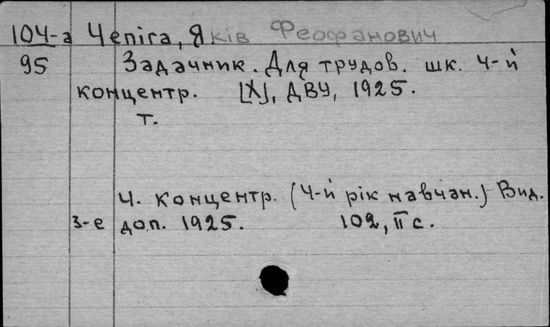 104-а Чепіга, Яків Феофанович
95 Задачник. Для трудов. шк. 4-й
концентр. [Х], ДВУ, 1925.
т.
4. концентр. (4-й рік навчан.) Вид.
3-е доп. 1925. 102, II с.